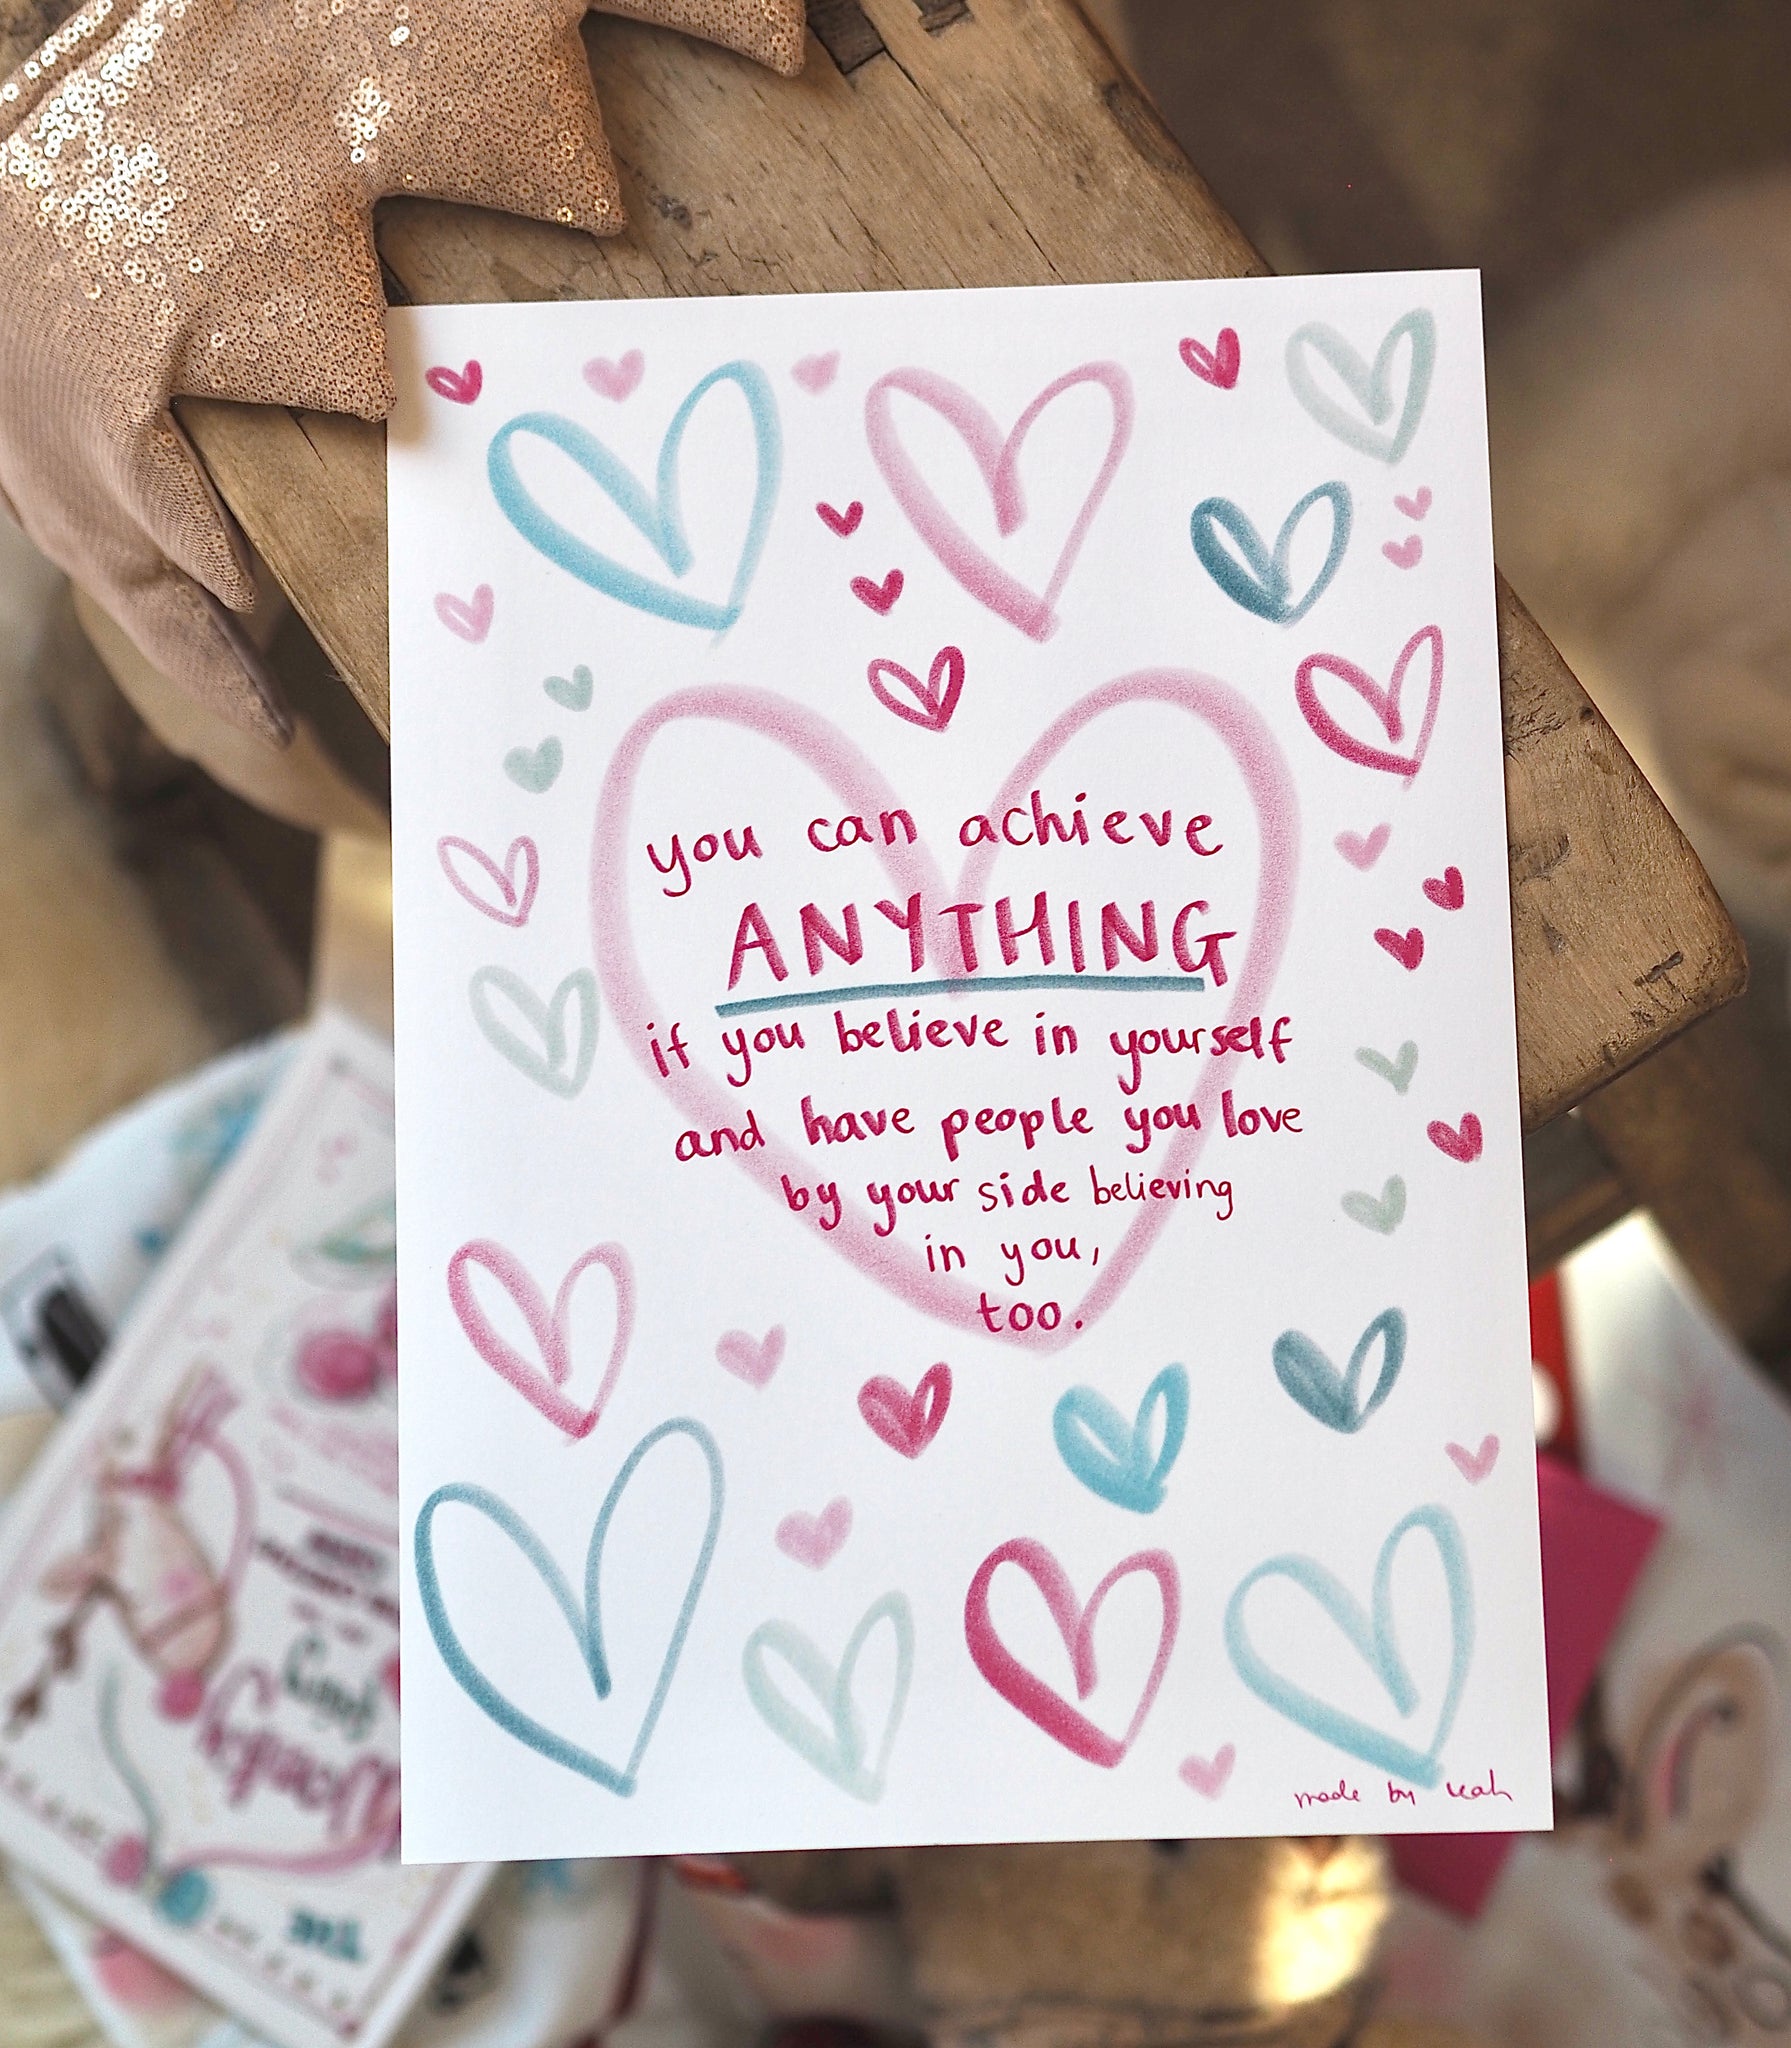 you can achieve
ANYTHING
if you believe in yourself
and have people you love
by your side believing
in you,
too.
made by Leah